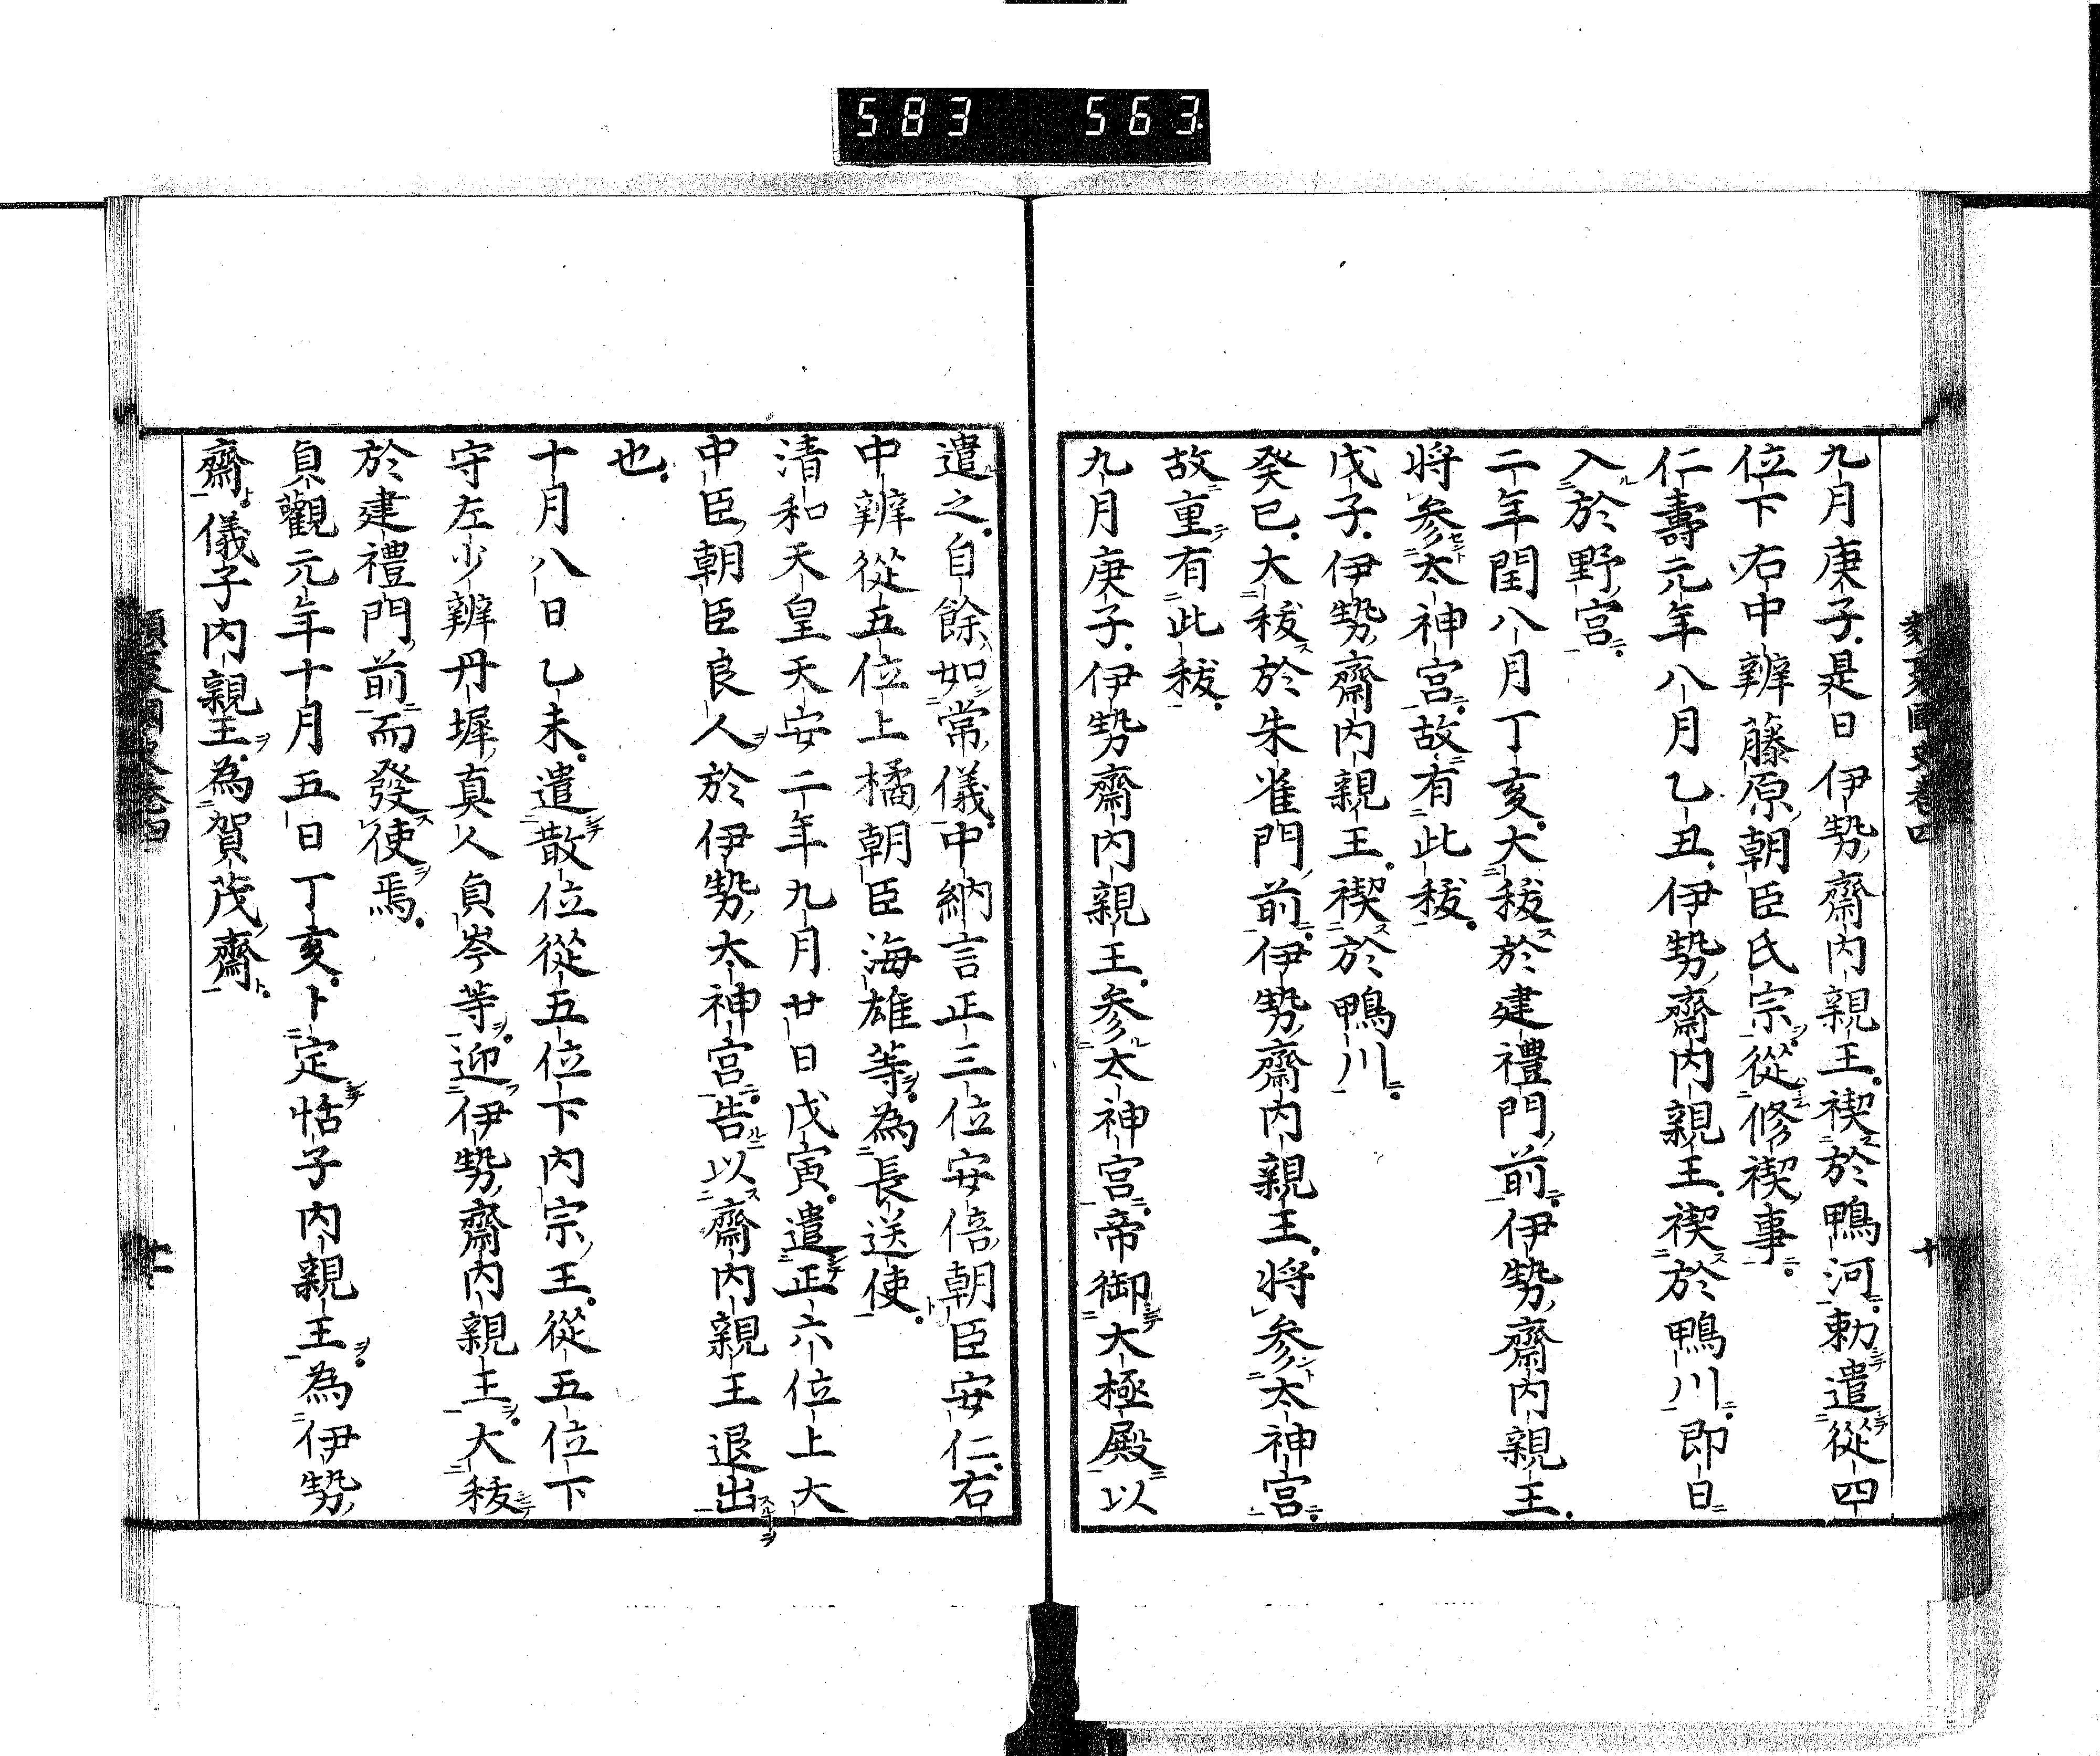 583 563
九月庚子是日伊勢齋内親王禊於鴨河勅遣從四
位下右中辨藤原朝臣氏宗從修禊事
仁壽元年八月乙丑伊勢齋内親王禊於鴨川即日
入於野宮
二年閏八月丁亥大秡於建禮門前伊勢齋内親王
将参太神宮故有此秡
戊子伊勢齋内親王禊於鴨川
癸巳大秡於朱雀門前伊勢齋内親王将参太神宮
故重有此秡
九月庚子伊勢齋内親王参太神宮帝御大極殿以
遣之自餘如常儀中納言正三位安倍朝臣安仁右
中辨從五位上橘朝臣海雄等為長送使
清和天皇天安二年九月廿日戊寅遣正六位上大
中臣朝臣良人於伊勢太神宮告以齋内親王退出
也
十月八日乙未遣散位從五位下内宗王從五位下
守左少辨丹墀真人貞岑等迎伊勢齋内親王大秡
於建禮門前而發使焉
貞觀元年十月五日丁亥卜定恬子内親王為伊勢
齋儀子内親王為賀茂齋